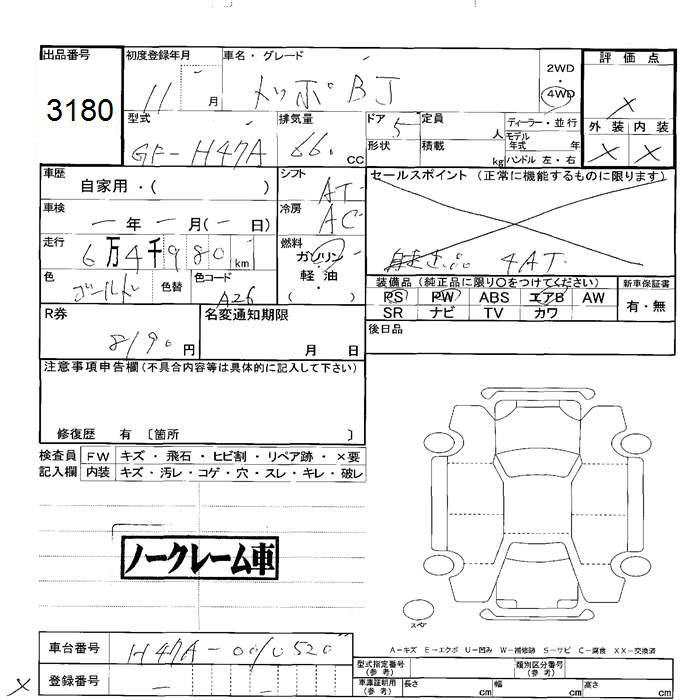 出品番号 初度登録年月 車名・グレード 2WD・4WD 評価点
3180 11 月 トッポBJ ×
型式 排気量 ドア 5 定員 人 ディーラー・並行 外装 内装
GF-H47A 66 cc 形状 積載 kg モデル年式 年 ハンドル 左・右 × ×
車歴 自家用・( ) シフト AT セールスポイント (正常に機能するものに限ります)
車検 ー年ー月(ー日) 冷房 AC
走行 6万4千980km 燃料 ガソリン・軽油 ( ) 4AT
色 ゴールド 色替 色コード A26
装備品 (純正品に限り〇をつけてください) 新車保証書
PS PW ABS エアB AW 有・無
SR ナビ TV カワ
R券 8190円 名変通知期限 月 日 後日品
注意事項申告欄(不具合内容等は具体的に記入して下さい)
修復歴 有 〔箇所 〕
検査員 FW キズ・飛石・ヒビ割・リペア跡・×要
記入欄 内装 キズ・汚レ・コゲ・穴・スレ・キレ・破レ
ノークレーム車
スペア
A-キズ E-エクボ U-凹み W-補修跡 S-サビ C-腐食 XX-交換済
車台番号 H47A-
型式指定番号(参考) 類別区分番号(参考)
× 登録番号 ー ー
車庫証明用(参考) 長さ cm 幅 cm 高さ cm